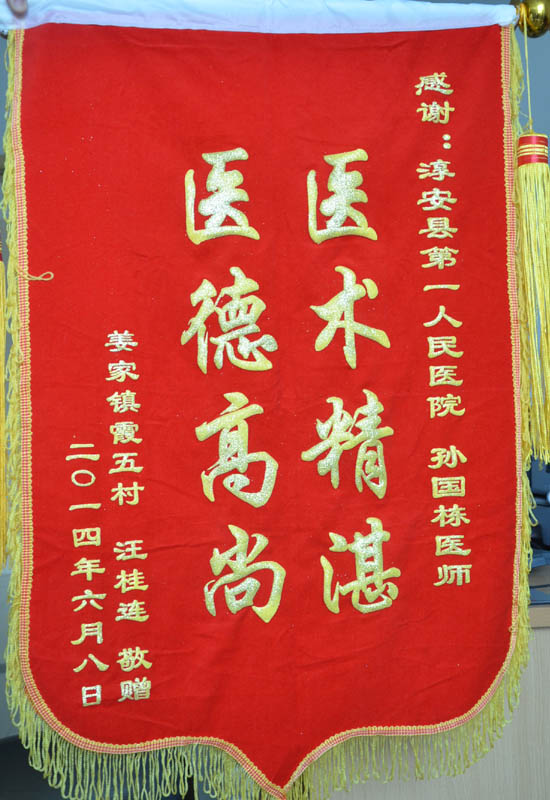 感谢：淳安县第一人民医院 孙国栋医师
医术精湛
医德高尚
姜家镇霞五村 汪桂连 敬赠
二〇一四年六月八日